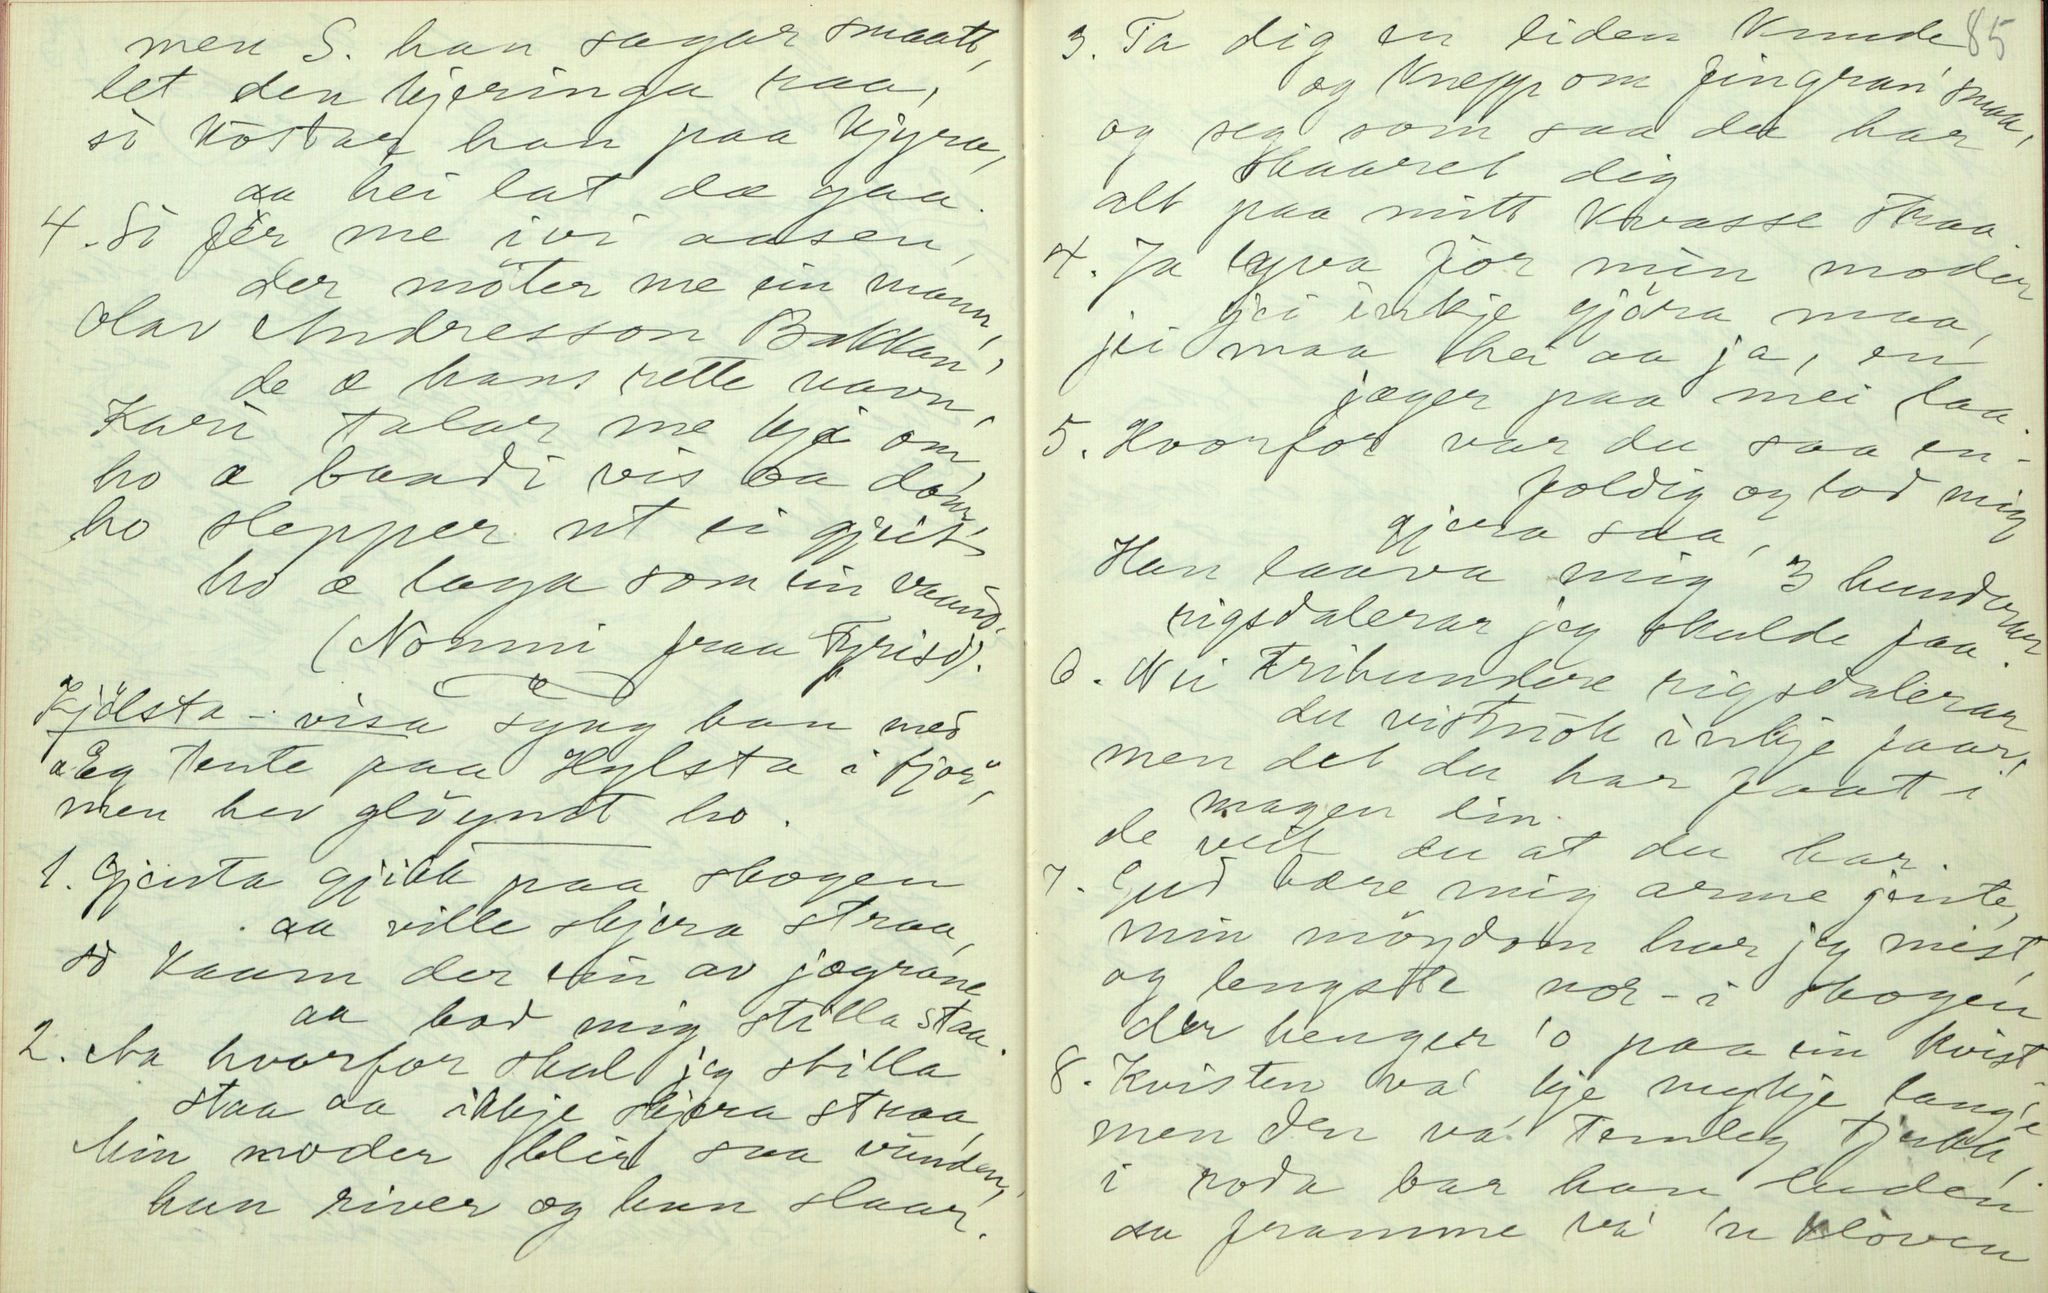 men S. han sagar smaatt,
let den kjeringa raa,
so kostar han paa kjyra,
aa hei lat dæ gaa.
4. So fer me ivi aasen,
der möter me ein mann,
Olav Andresson Bakkan',
de æ hans rette navn,
Kari talar me kje om,
ho æ baadi vis aa dom,
ho slepper ut ei gjeit,
ho æ laga som ein vaand.
(Nommi fraa Fyrisd).
Kjölsta-visa syng han med
"Eg tente paa Hylsta i fjor",
men hev glöymt ho.
1. Gjenta gjikk paa skogen
aa ville skjera straa,
so kaam der ein av jægrane
aa bad mig stilla staa.
2. Aa hvorfor skal jeg stilla
staa aa ikkje skjera straa,
Min moder blir saa vunden,
hun river og hun slaar.
85
3. Ta dig en liden knude
og knepp om fingran' smaa,
og seg som saa du har
skaaret dig
alt paa mitt kvasse straa.
4. Ja lyva for min moder
jei inkje gjöra maa,
jei maa hei aa ja, en
jæger paa mei laa.
5. Hvorfor var du saa en-
foldig og lod mig
gjera saa,
Han laava mig 3 hundrar
rigsdalerar jeg skulde faa.
6. Nei trihundre rigsdalerar
du vistnok inkje faar,
men det du har faat i
magen din
de veit du at du har.
7. Gud bære mig arme jente,
min möydom har jeg mist,
og lengste nor-i skogen
der henger 'o paa ein kvist
8. Kvisten va' kje mykje lang'e
men den va' temleg tjukk,
i roda var han luden
aa framme va' 'n kloven